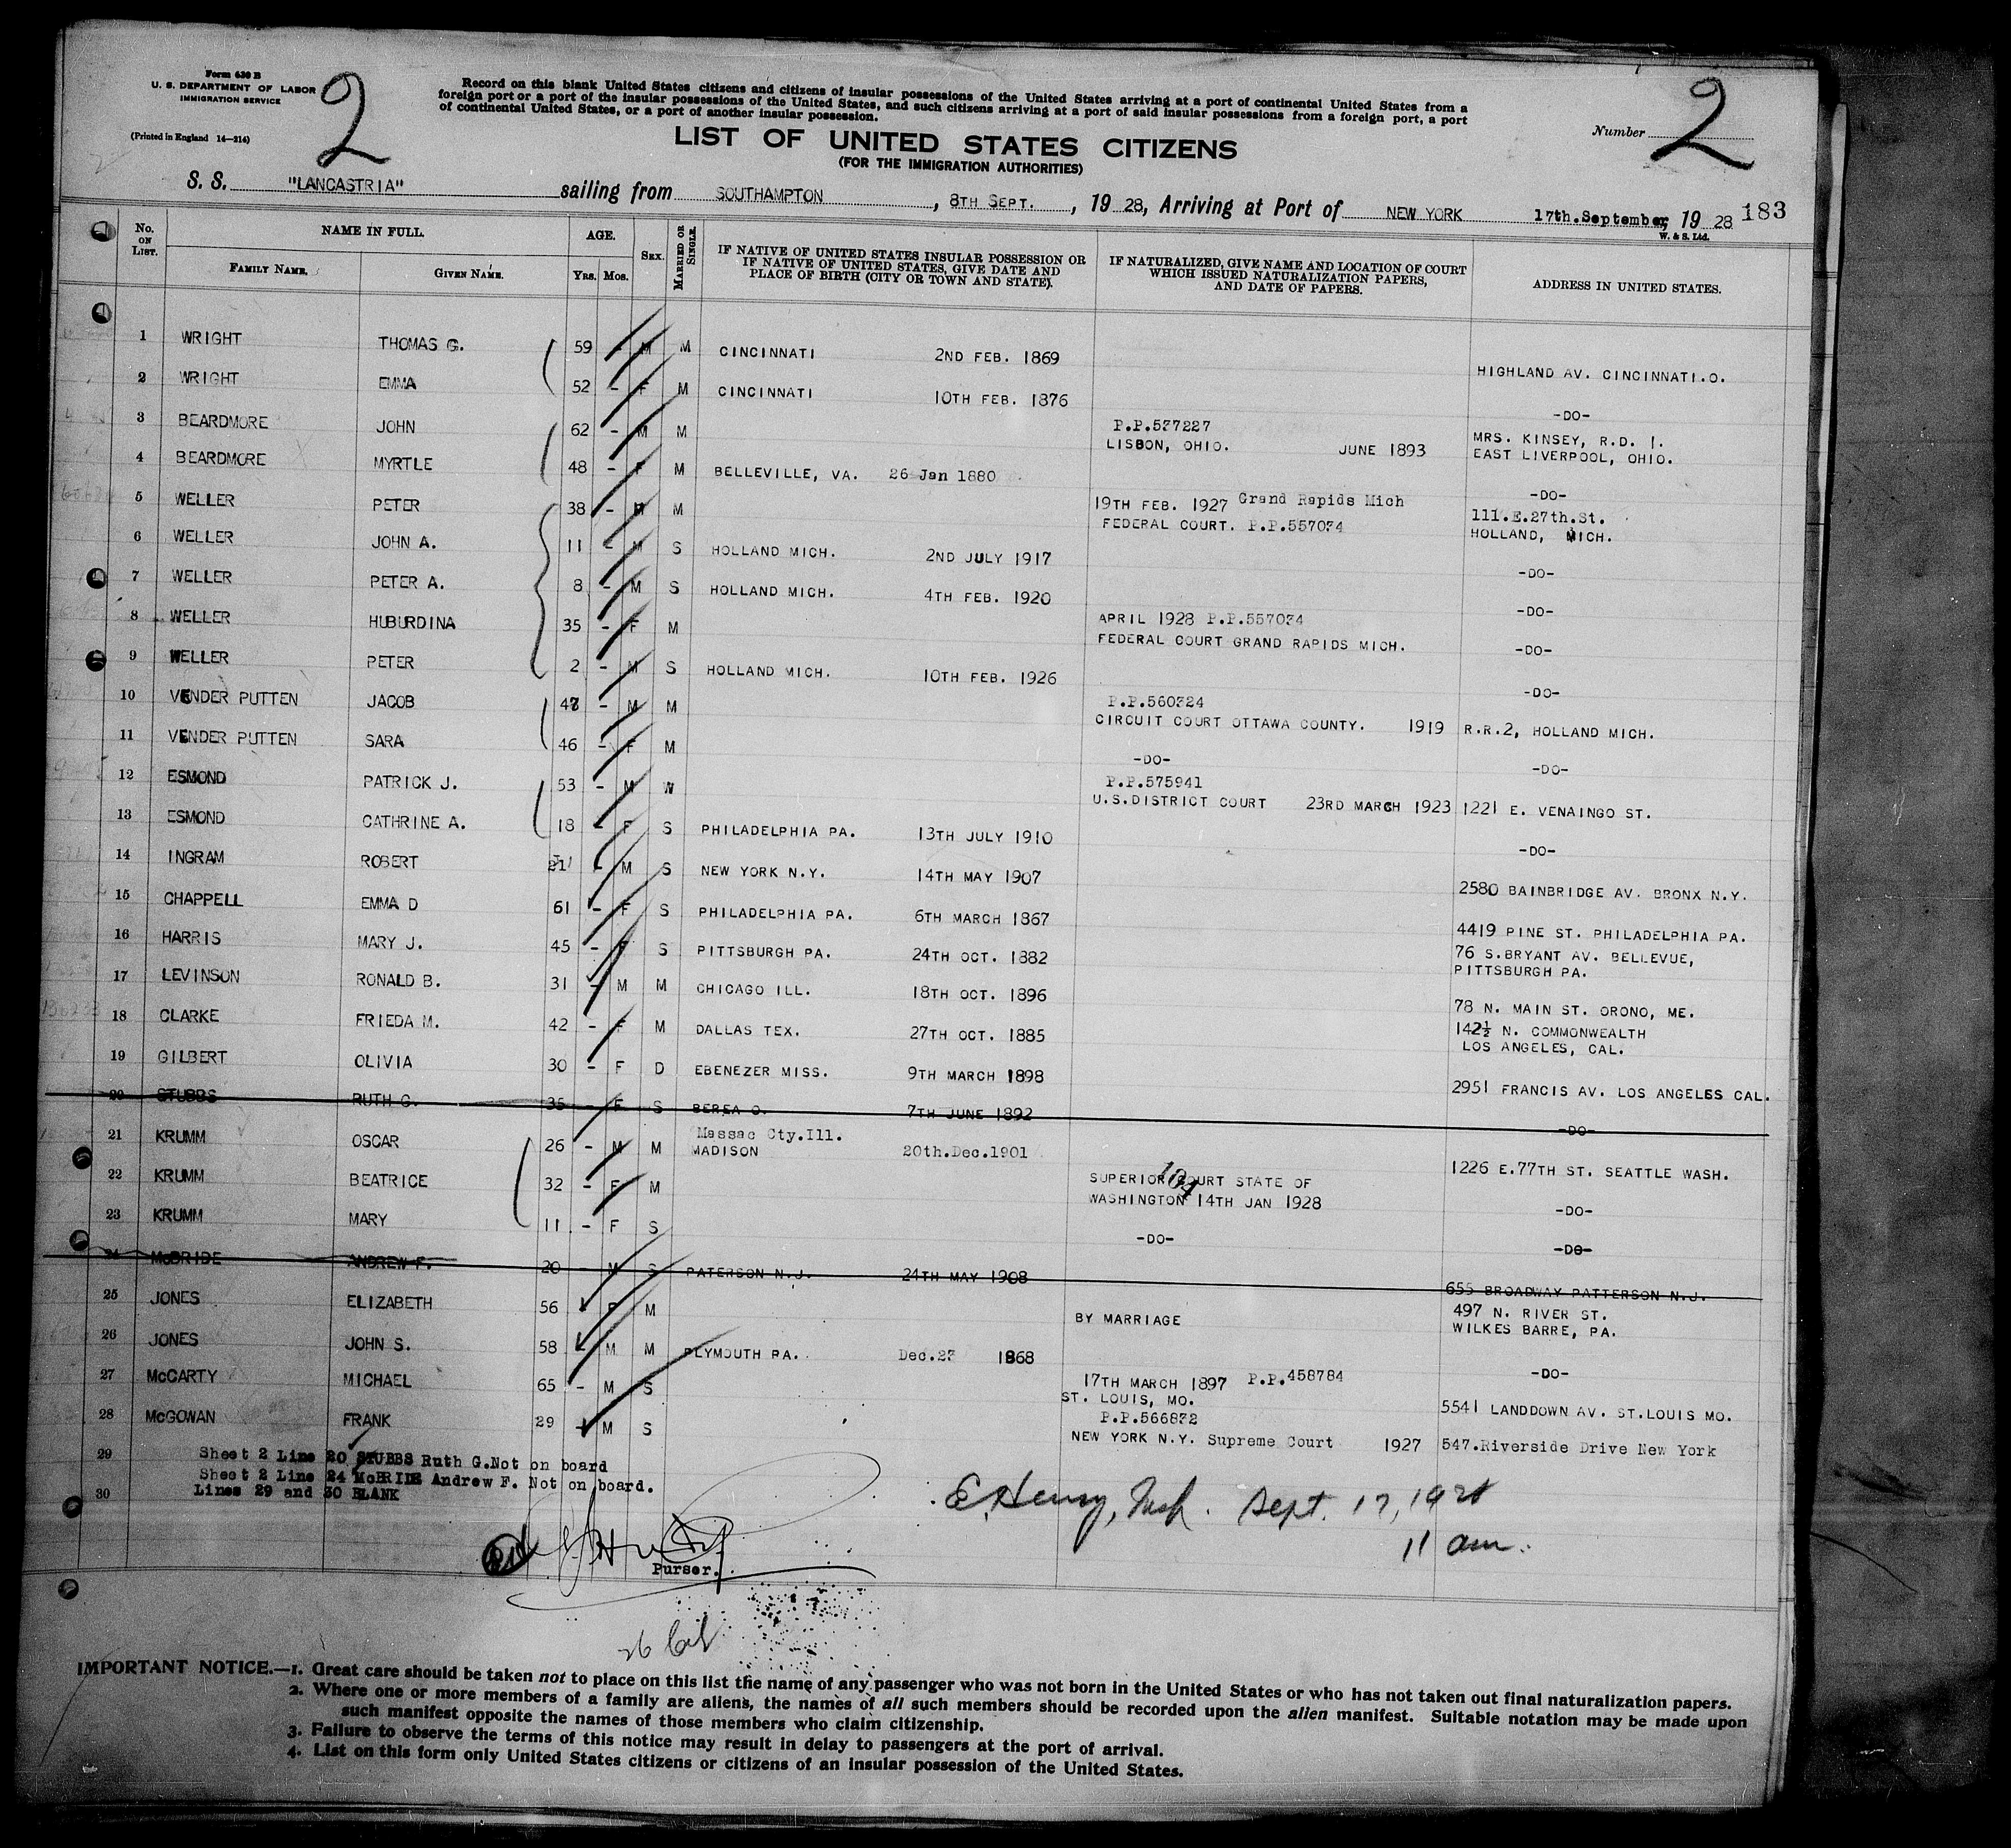 Form 630 B
U. S. DEPARTMENT OF LABOR
IMMIGRATION SERVICE
(Printed in England 14—214)
2
Record on this blank United States citizens and citizens of insular possessions of the United States arriving at a port of continental United States from a
foreign port or a port of the insular possessions of the United States, and such citizens arriving at a port of said insular possessions from a foreign port, a port
of continental United States, or a port of another insular possession.
LIST OF UNITED STATES CITIZENS
(FOR THE IMMIGRATION AUTHORITIES)
Number
2
S. S. "LANCASTRIA" sailing from SOUTHAMPTON, 8TH SEPT., 19 28, Arriving at Port of NEW YORK 17th.September, 19 28
183
W. & S. Ltd.
No. ON LIST.
NAME IN FULL.
FAMILY NAME.
GIVEN NAME.
AGE.
YRS. MOS.
SEX.
MARRIED OR SINGLE.
IF NATIVE OF UNITED STATES INSULAR POSSESSION OR
IF NATIVE OF UNITED STATES, GIVE DATE AND
PLACE OF BIRTH (CITY OR TOWN AND STATE).
IF NATURALIZED, GIVE NAME AND LOCATION OF COURT
WHICH ISSUED NATURALIZATION PAPERS,
AND DATE OF PAPERS.
ADDRESS IN UNITED STATES.
1 WRIGHT THOMAS G. 59 - M M CINCINNATI 2ND FEB. 1869 HIGHLAND AV. CINCINNATI.O.
2 WRIGHT EMMA 52 - F M CINCINNATI 10TH FEB. 1876 -DO-
3 BEARDMORE JOHN 62 - M M P.P.537227
LISBON, OHIO. JUNE 1893 MRS. KINSEY, R.D. 1.
EAST LIVERPOOL, OHIO.
4 BEARDMORE MYRTLE 48 - F M BELLEVILLE, VA. 26 Jan 1880 -DO-
5 WELLER PETER 38 - M M 19TH FEB. 1927 Grand Rapids Mich
FEDERAL COURT. P.P.557034 111.E.27th.St.
HOLLAND, MICH.
6 WELLER JOHN A. 11 - M S HOLLAND MICH. 2ND JULY 1917 -DO-
7 WELLER PETER A. 8 - M S HOLLAND MICH. 4TH FEB. 1920 -DO-
8 WELLER HUBURDINA 35 - F M APRIL 1928 P.P.557034
FEDERAL COURT GRAND RAPIDS MICH. -DO-
9 WELLER PETER 2 - M S HOLLAND MICH. 10TH FEB. 1926 -DO-
10 VENDER PUTTEN JACOB 47 - M M P.P.560324
CIRCUIT COURT OTTAWA COUNTY. 1919 R.R.2, HOLLAND MICH.
11 VENDER PUTTEN SARA 46 - F M -DO- -DO-
12 ESMOND PATRICK J. 53 - M W P.P.575941
U.S.DISTRICT COURT 23RD MARCH 1923 1221 E. VENAINGO ST.
13 ESMOND CATHRINE A. 18 - F S PHILADELPHIA PA. 13TH JULY 1910 -DO-
14 INGRAM ROBERT 21 - M S NEW YORK N.Y. 14TH MAY 1907 2580 BAINBRIDGE AV. BRONX N.Y.
15 CHAPPELL EMMA D 61 - F S PHILADELPHIA PA. 6TH MARCH 1867 4419 PINE ST. PHILADELPHIA PA.
16 HARRIS MARY J. 45 - F S PITTSBURGH PA. 24TH OCT. 1882 76 S.BRYANT AV. BELLEVUE,
PITTSBURGH PA.
17 LEVINSON RONALD B. 31 - M M CHICAGO ILL. 18TH OCT. 1896 78 N. MAIN ST. ORONO, ME.
18 CLARKE FRIEDA M. 42 - F M DALLAS TEX. 27TH OCT. 1885 142½ N. COMMONWEALTH
LOS ANGELES, CAL.
19 GILBERT OLIVIA 30 - F D EBENEZER MISS. 9TH MARCH 1898 2951 FRANCIS AV. LOS ANGELES CAL.
20 STUBBS RUTH G. 35 - F S BEREA O. 7TH JUNE 1892 -DO-
21 KRUMM OSCAR 26 - M M Massac Cty.Ill.
MADISON 20th.Dec.1901 1226 E.77TH ST. SEATTLE WASH.
22 KRUMM BEATRICE 32 - F M SUPERIOR COURT STATE OF
WASHINGTON 14TH JAN 1928 -DO-
23 KRUMM MARY 11 - F S -DO- -DO-
24 McBRIDE ANDREW F. 20 - M S PATERSON N.J. 24TH MAY 1908 655 BROADWAY PATTERSON N.J.
25 JONES ELIZABETH 56 F M BY MARRIAGE 497 N. RIVER ST.
WILKES BARRE, PA.
26 JONES JOHN S. 58 M M PLYMOUTH PA. Dec.23 1868 -DO-
27 McCARTY MICHAEL 65 - M S 17TH MARCH 1897 P.P.458784
ST. LOUIS, MO. 5541 LANDDOWN AV. ST.LOUIS MO.
28 McGOWAN FRANK 29 - M S P.P.566832
NEW YORK N.Y. Supreme Court 1927 547.Riverside Drive New York
29 Sheet 2 Line 20 STUBBS Ruth G.Not on board
Sheet 2 Line 24 McBRIDE Andrew F. Not on board.
30 Lines 29 and 30 BLANK
E. Henry, Insp. Sept. 17, 1928
11 am.
Purser.
26 Cit
IMPORTANT NOTICE.—1. Great care should be taken not to place on this list the name of any passenger who was not born in the United States or who has not taken out final naturalization papers.
2. Where one or more members of a family are aliens, the names of all such members should be recorded upon the alien manifest. Suitable notation may be made upon
such manifest opposite the names of those members who claim citizenship.
3. Failure to observe the terms of this notice may result in delay to passengers at the port of arrival.
4. List on this form only United States citizens or citizens of an insular possession of the United States.